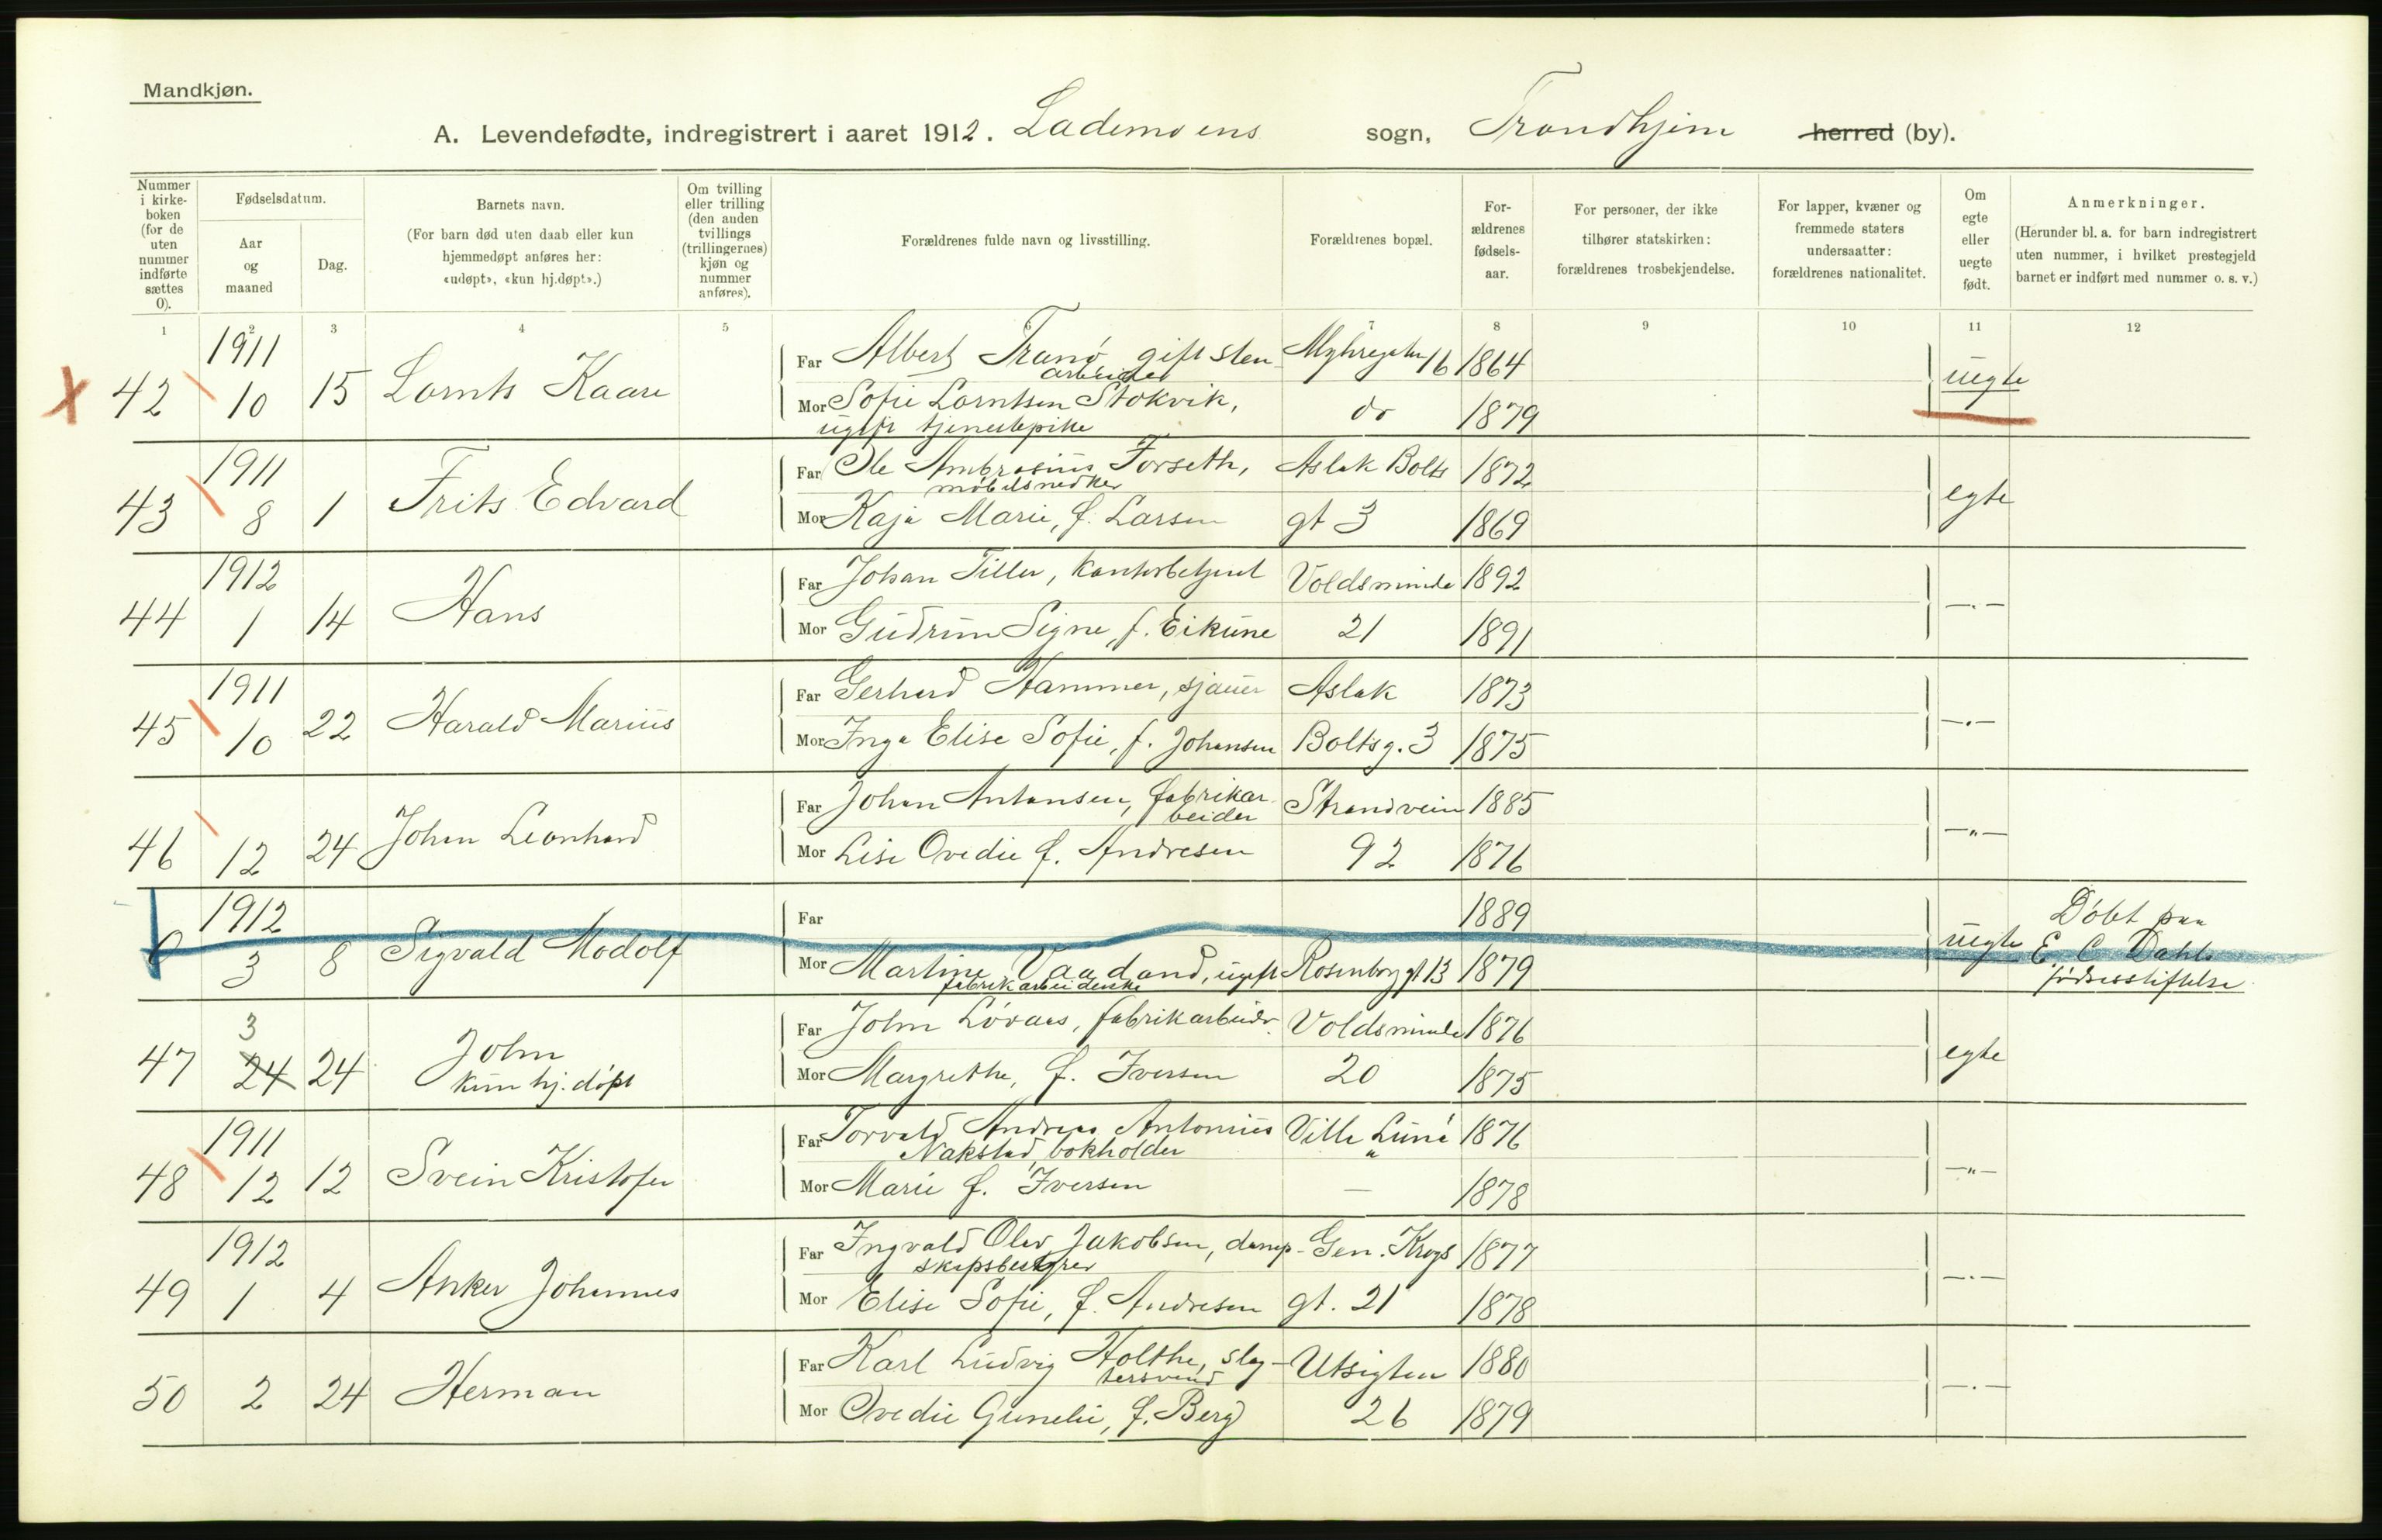 Mandkjøn.
A. Levendefødte, indregistrert i aaret 1912. Lademoens sogn, Trondhjem herred (by).
Nummer i kirke-boken (for de uten nummer indførte sættes 0).
Fødselsdatum.
Aar og maaned
Dag.
Barnets navn.
(For barn død uten daab eller kun hjemmedøpt anføres her: «udøpt», «kun hj.døpt».)
Om tvilling eller trilling (den anden tvillings (trillingernes) kjøn og nummer anføres).
Forældrenes fulde navn og livsstilling.
Forældrenes bopæl.
For-ældrenes fødsels-aar.
For personer, der ikke tilhører statskirken: forældrenes trosbekjendelse.
For lapper, kvæner og fremmede staters undersaatter: forældrenes nationalitet.
Om egte eller uegte født.
Anmerkninger.
(Herunder bl. a. for barn indregistrert uten nummer, i hvilket prestegjeld barnet er indført med nummer o. s. v.)
1 2 3 4 5 6 7 8 9 10 11 12
X 42 1911 10 15 Lornts Kaare
Far Albert Tranø, gift sten- 16 1864
arbeider
Mor Sofie Lorntsen Stokvik, do 1879 uegte
ugift tjenestepike
43 1911 8 1 Frits Edvard
Far Ole Ambrosius Forseth, Aslak Bolts 1872
møbelsnedker
Mor Kaja Marie, f. Larsen gt 3 1869 egte
44 1912 1 14 Hans
Far Johan Tiller, kontorbetjent Voldsminde 1892
Mor Gudrun Signe, f. Eikune 21 1891 —.—
45 1911 10 22 Harald Marius
Far Gerhard Hammer, sjauer Aslak 1873
Mor Inga Elise Sofie, f. Johansen Boltsg. 3 1875 —.—
46 12 24 Johan Leonhard
Far Johan Antonsen, fabrikar- Strandvein 1885
beider
Mor Lise Ovedie f. Andresen 92 1876 —"—
0 1912 3 8 Sigvald Modolf
Far 1889
Mor Martine Vaadand, ugift Rosenborggt 13 1879 uegte
fabrikarbeiderske
Døbt paa
E. C. Dahls
fødselsstiftelse
47 3 24 24 John
kun hj. døpt
Far John Løvaas, fabrikarbeider. Voldsminde 1876
Mor Margrethe, f. Iversen 20 1875 egte
48 1911 12 12 Svein Kristofer
Far Torvald Andreas Antonius Villa "Luna" 1876
Nakstad, bokholder
Mor Marie f. Iversen — 1878 —"—
49 1912 1 4 Anker Johannes
Far Ingvald Olav Jakobsen, damp- Gen. Krogs 1877
skipsbestyrer
Mor Elise Sofie, f. Andresen gt. 21 1878 —.—
50 2 24 Herman
Far Karl Ludvig Holthe, slag- Utsigten 1880
tersvend
Mor Ovedie Gunelie, f. Berg 26 1879 —.—